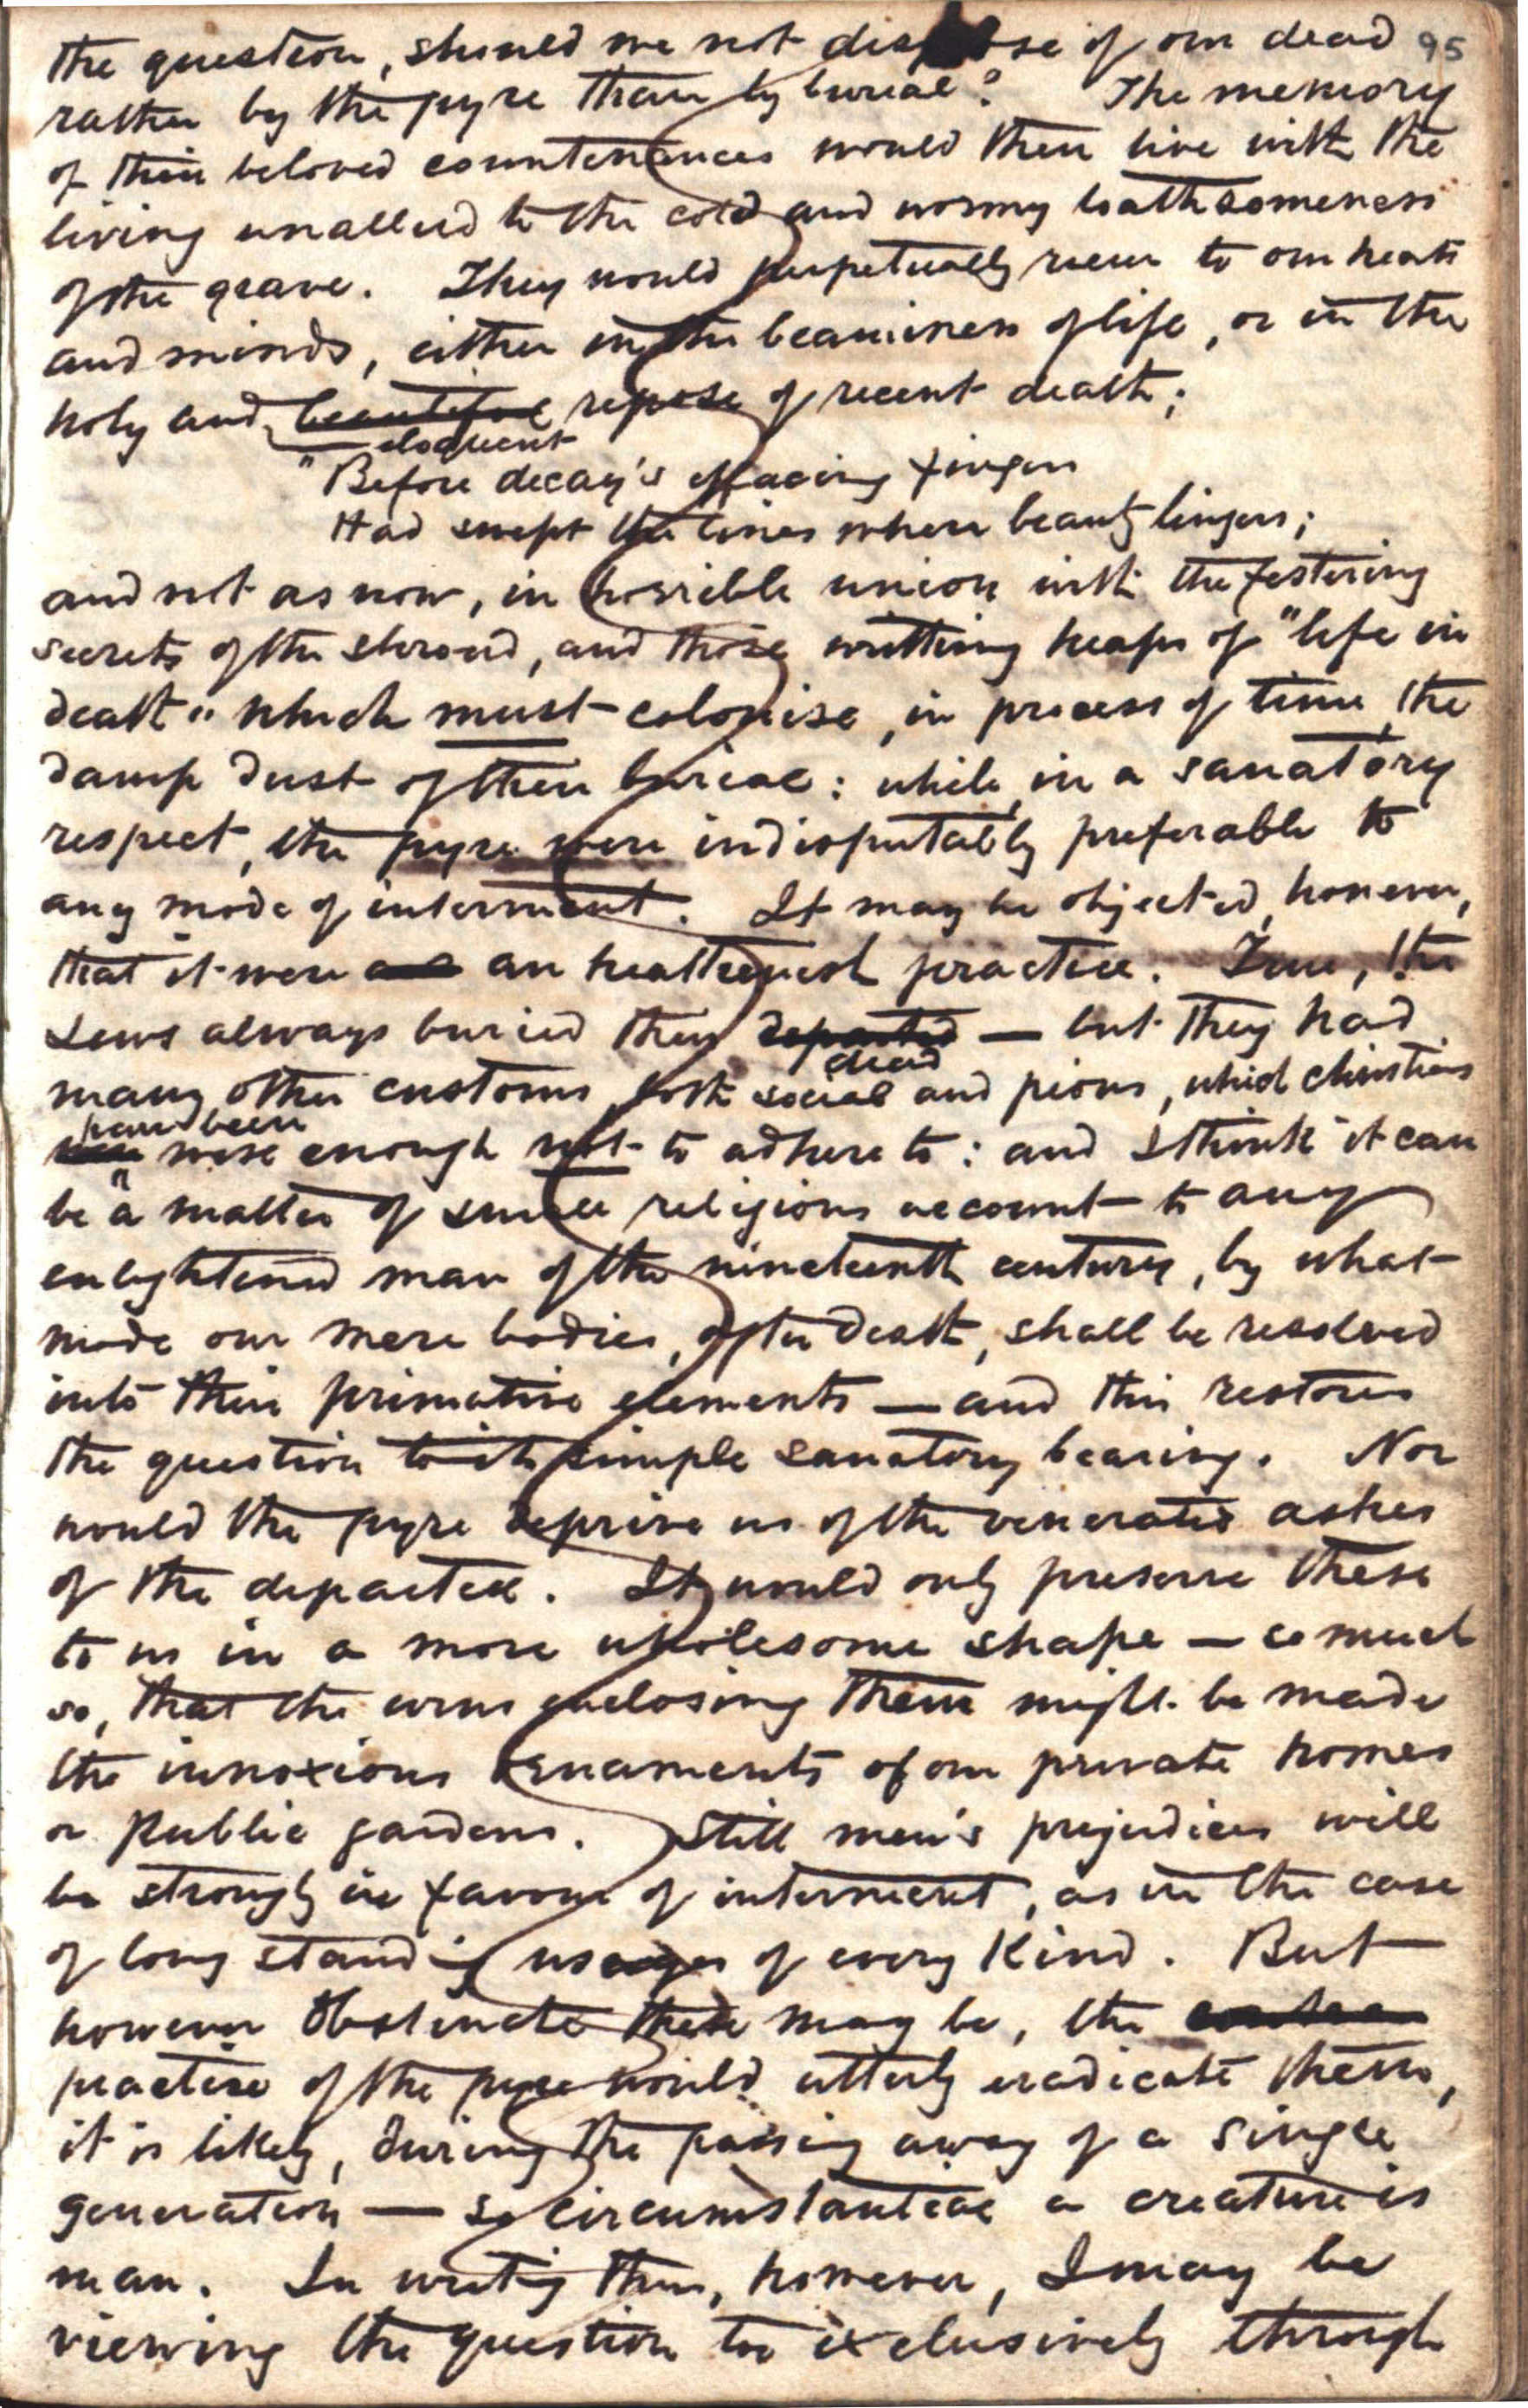 the question, should we not dispose of our dead 95
rather by the pyre than by burial? The memory
of their beloved countenances would then live with the
living unallied to the cold and wormy loathsomeness
of the grave. They would perpetually recur to our hearts
and minds, either in the beaminess of life, or in the
holy and beautiful repose of recent death;
eloquent
"Before decay's effacing fingers
Had swept the lines where beauty lingers;
and not as now, in horrible union with the festering
secrets of the shroud, and those writhing heaps of "life in
death" which must colonise, in process of time, the
damp dust of their burial: while, in a sanatory
respect, the pyre were indisputably preferable to
any mode of interment. It may be objected, however,
that it were an heathenish practice. True, the
Jews always buried their departed — but they had
dead
many other customs, both social and pious, which christians
have been
were wise enough not to adhere to: and I think it can
be a matter of small religious account to any
enlightened man of the nineteenth century, by what
mode our mere bodies, after death, shall be resolved
into their primative elements — and this restores
the question to its simple sanatory bearing. Nor
would the pyre deprive us of the venerated ashes
of the departed. It would only preserve these
to us in a more wholesome shape — so much
so, that the urns enclosing them might be made
the innoxious ornaments of our private homes
or public gardens. Still men's prejudices will
be strongly in favour of interment, as in the case
of long standing usages of every kind. But
however obstinate these may be, the
practise of the pyre would utterly eradicate them,
it is likely, during the passing away of a single
generation — so circumstantial a creature is
man. In writing thus, however, I may be
viewing the question too exclusively through